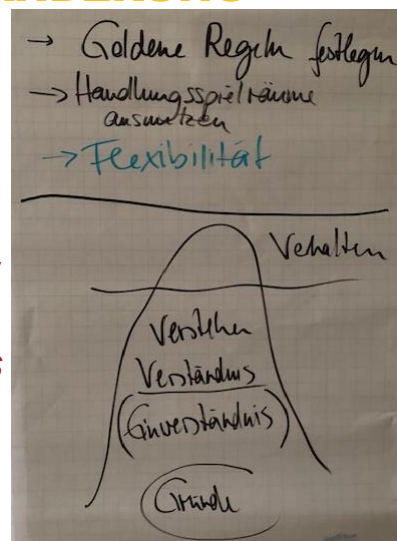 → Goldene Regeln festlegen
→ Handlungsspielräume
ausnutzen
→ Flexibilität
Verhalten
Verstehen
Verständnis
(Einverständnis)
Gründe